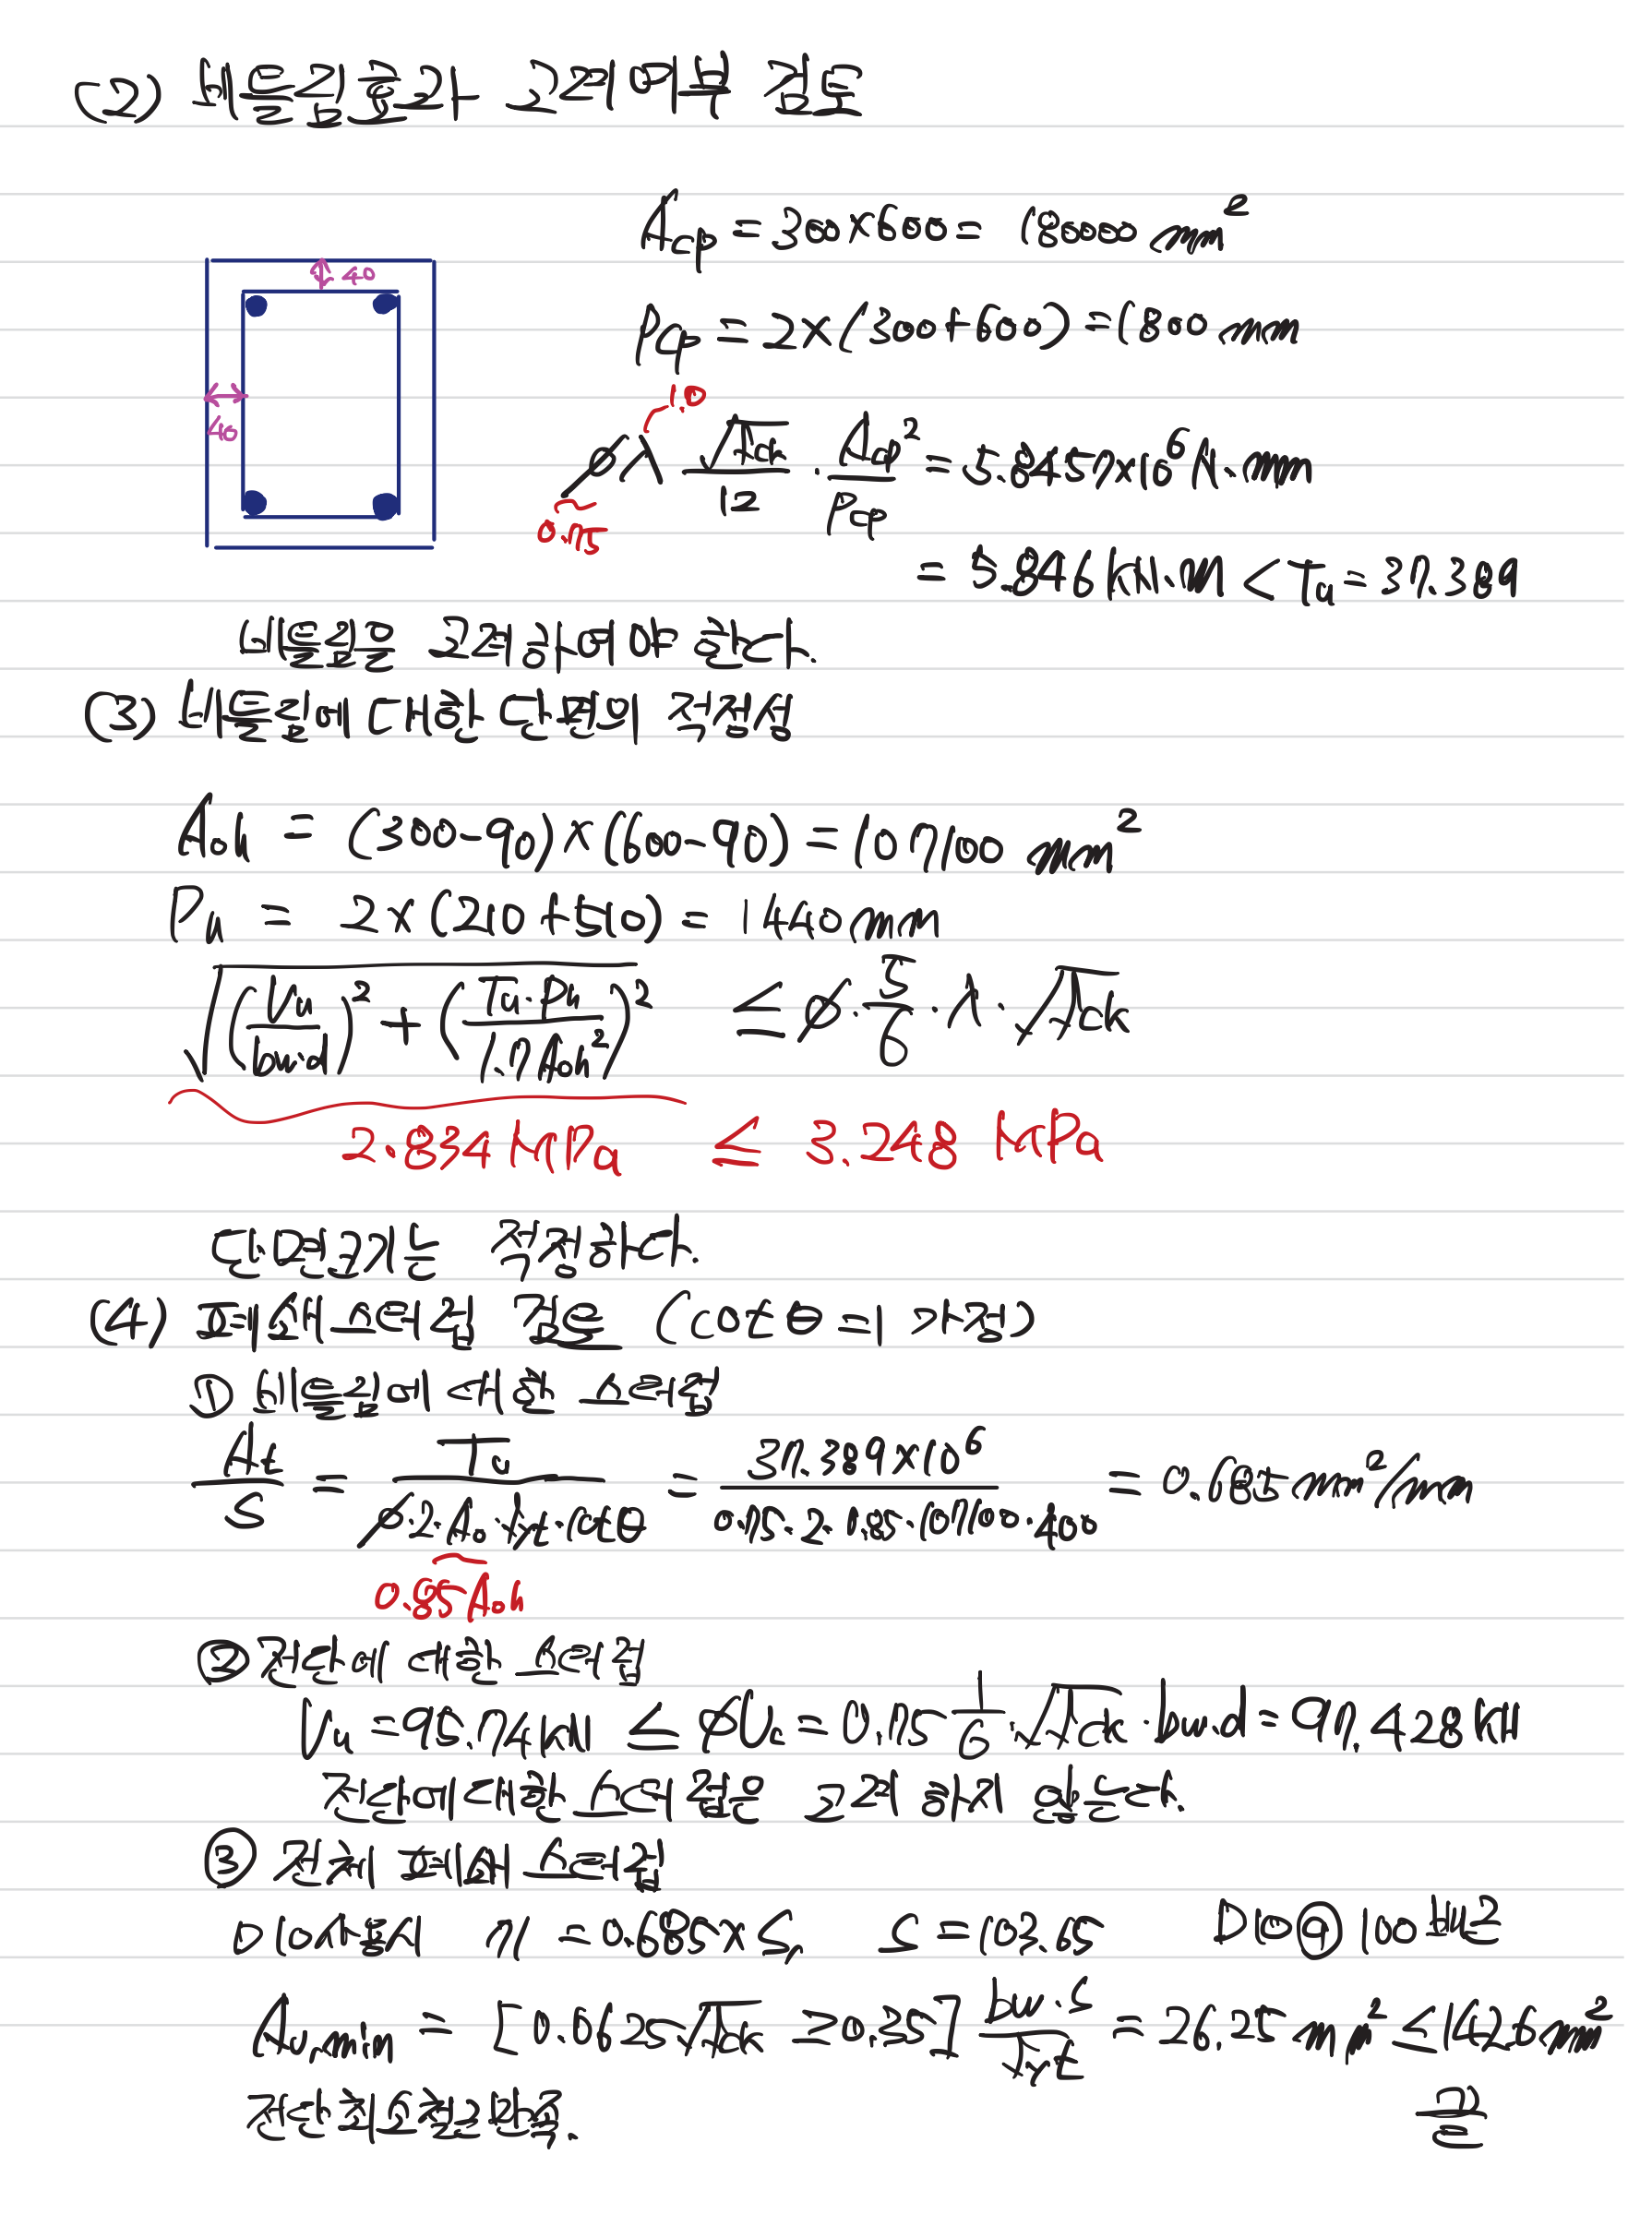 (2) 비틀림효과 고려여부 검토
40
40
Acp = 300×600 = 18000 mm²
Pcp = 2×(300+600) = 1800 mm
1.0
φλ √fck/12 · Acp²/Pcp = 5.8457×10⁶ N·mm
0.75
= 5.846 kN·m < Tu = 37.389
비틀림을 고려하여야 한다.
(3) 비틀림에 대한 단면의 적정성
Aoh = (300-90)×(600-90) = 107100 mm²
Ph = 2×(210+510) = 1440 mm
√((Vu/bw·d)² + (Tu·Ph/1.7Aoh²)²) ≤ φ·5/6·λ·√fck
2.834 MPa ≤ 3.248 MPa
단면크기는 적정하다.
(4) 폐쇄스터럽 검토 (cotθ=1 가정)
① 비틀림에 대한 스터럽
At/S = Tu/φ·2·Ao·fyt·cotθ = 37.389×10⁶/0.75·2·0.85·107100·400 = 0.685 mm²/mm
0.85Aoh
② 전단에 대한 스터럽
Vu = 95.74kN ≤ φVc = 0.75 1/6·√fck·bw·d = 97.428kN
전단에 대한 스터럽은 고려하지 않는다.
③ 전체 폐쇄스터럽
D10사용시 71 = 0.685×S, S = 103.65 D10@100 배근
Av,min = [0.0625√fck ≥ 0.35] bw·s/fyt = 26.25 mm² ≤ 142.6mm²
전단최소철근만족.
끝